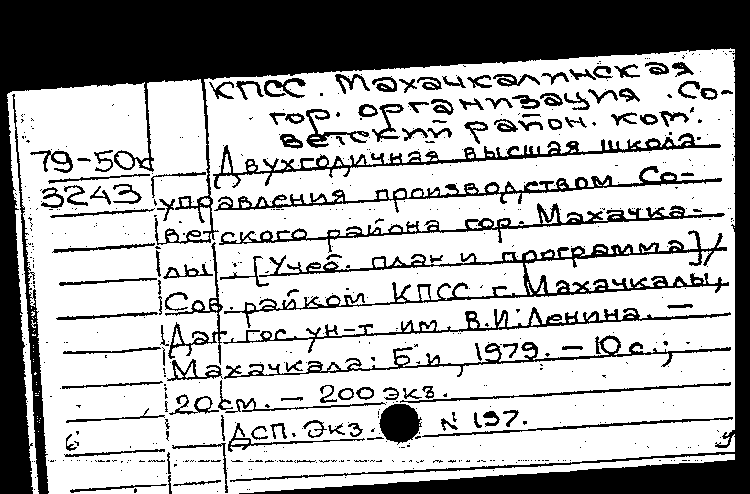 КПСС. Махачкалинская
гор. организация. Со-
ветский район. ком.
79-50к Двухгодичная высшая школа
3243 управления производством Со-
ветского района гор. Махачка-
лы : [Учеб. план и программа] /
Сов. райком КПСС г. Махачкалы,
Даг. гос. ун-т им. В.И. Ленина. —
Махачкала: Б.и, 1979. — 10 с.;
20 см. — 200 экз.
6 ДСП. Экз. N 197.